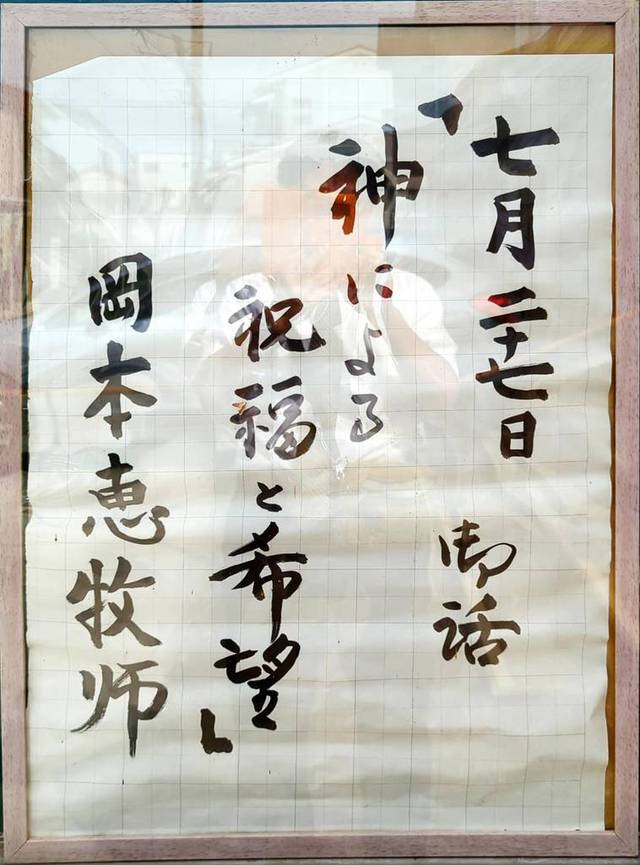 七月二十七日 御話
「神による
祝福と希望」
岡本恵牧师